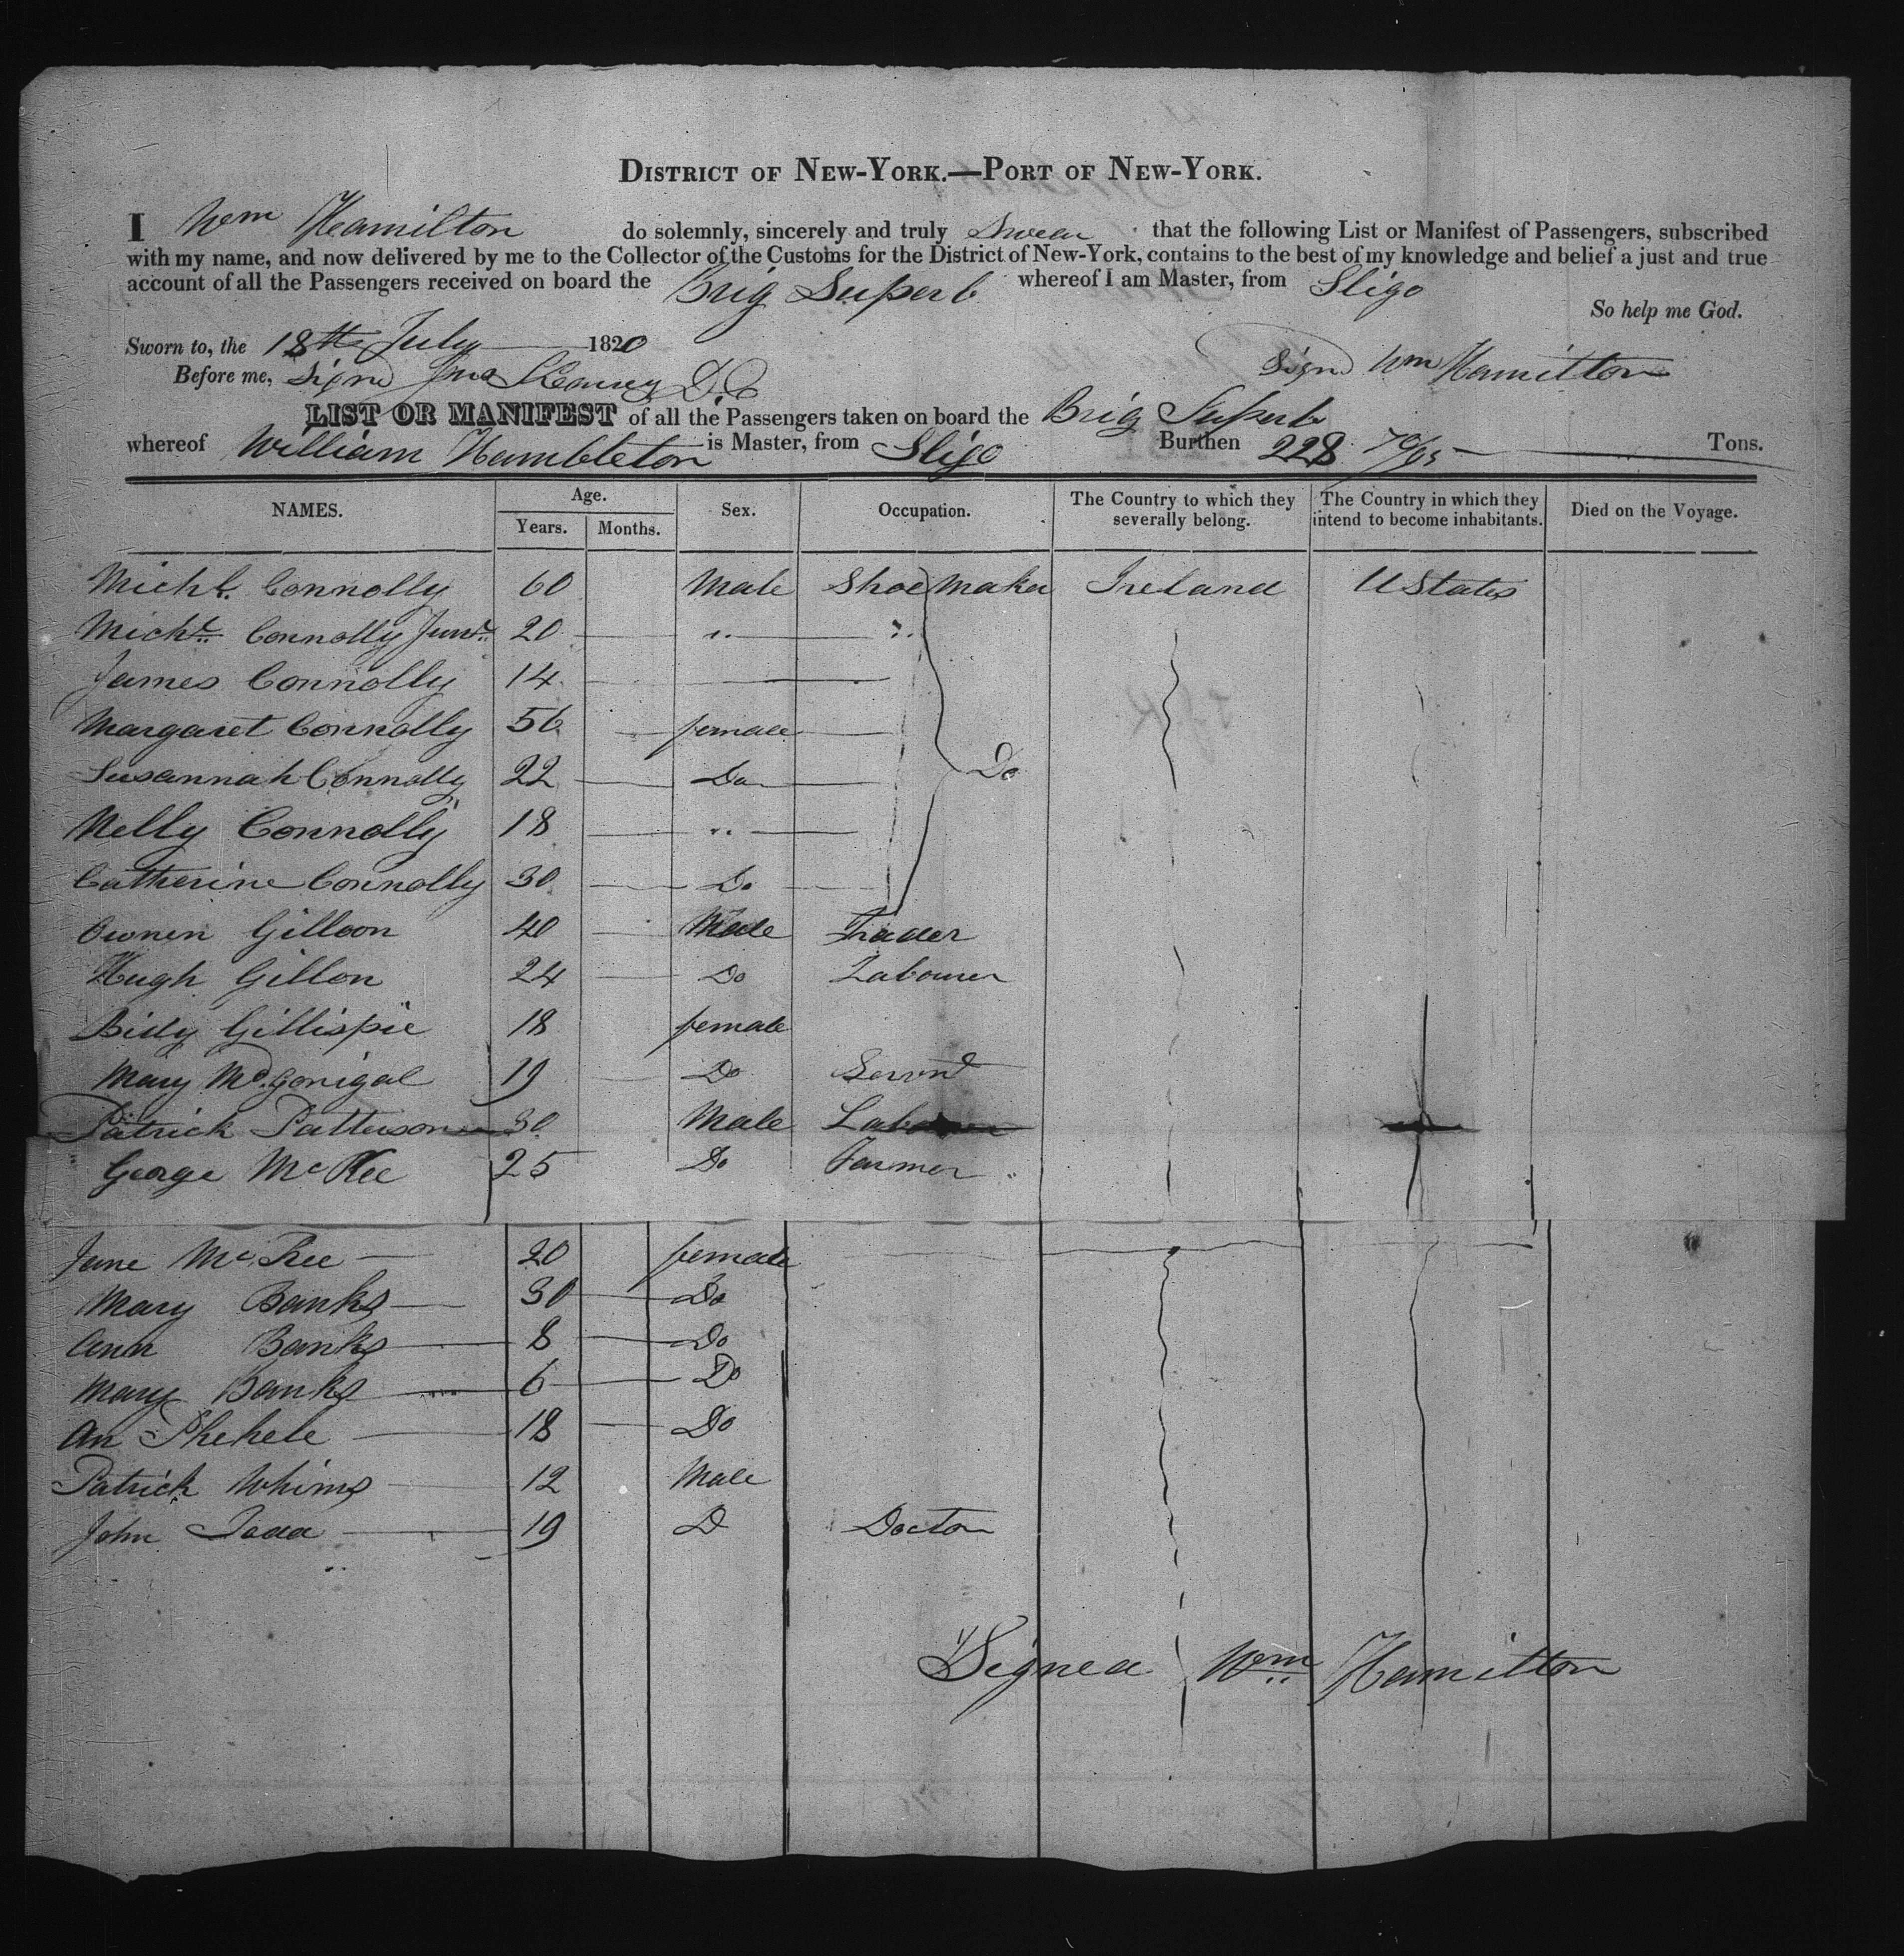 DISTRICT OF NEW-YORK.—PORT OF NEW-YORK.
I Wm Hamilton do solemnly, sincerely and truly Swear that the following List or Manifest of Passengers, subscribed
with my name, and now delivered by me to the Collector of the Customs for the District of New-York, contains to the best of my knowledge and belief a just and true
account of all the Passengers received on board the Brig Superb whereof I am Master, from Sligo
So help me God.
Sworn to, the 18th July 1820
Before me, Signd Jno D.C Signd Wm Hamilton
LIST OR MANIFEST of all the Passengers taken on board the Brig Superb
whereof William Hambleton is Master, from Sligo Burthen 228 70/95 Tons.
NAMES. Age. Years. Months. Sex. Occupation. The Country to which they severally belong. The Country in which they intend to become inhabitants. Died on the Voyage.
Michl. Connolly 60 Male Shoe Maker Ireland U States
Michl. Connolly Junr. 20 " "
James Connolly 14
Margaret Connolly 56 female
Susannah Connolly 22 Do Do
Nelly Connolly 18 "
Catherine Connolly 30 Do
Ownen Gilloon 40 Male Trader
Hugh Gillon 24 Do Labourer
Bidy Gillispie 18 female
Mary McGonigal 19 Do Servnt
Patrick Patterson 30 Male Labourer
George McKee 25 Do Farmer
Jane McKee 20 female
Mary Banks 30 Do
Ann Banks 8 Do
Mary Banks 6 Do
An 18 Do
Patrick Whims 12 Male
John Todd 19 D Doctor
Signed Wm Hamilton